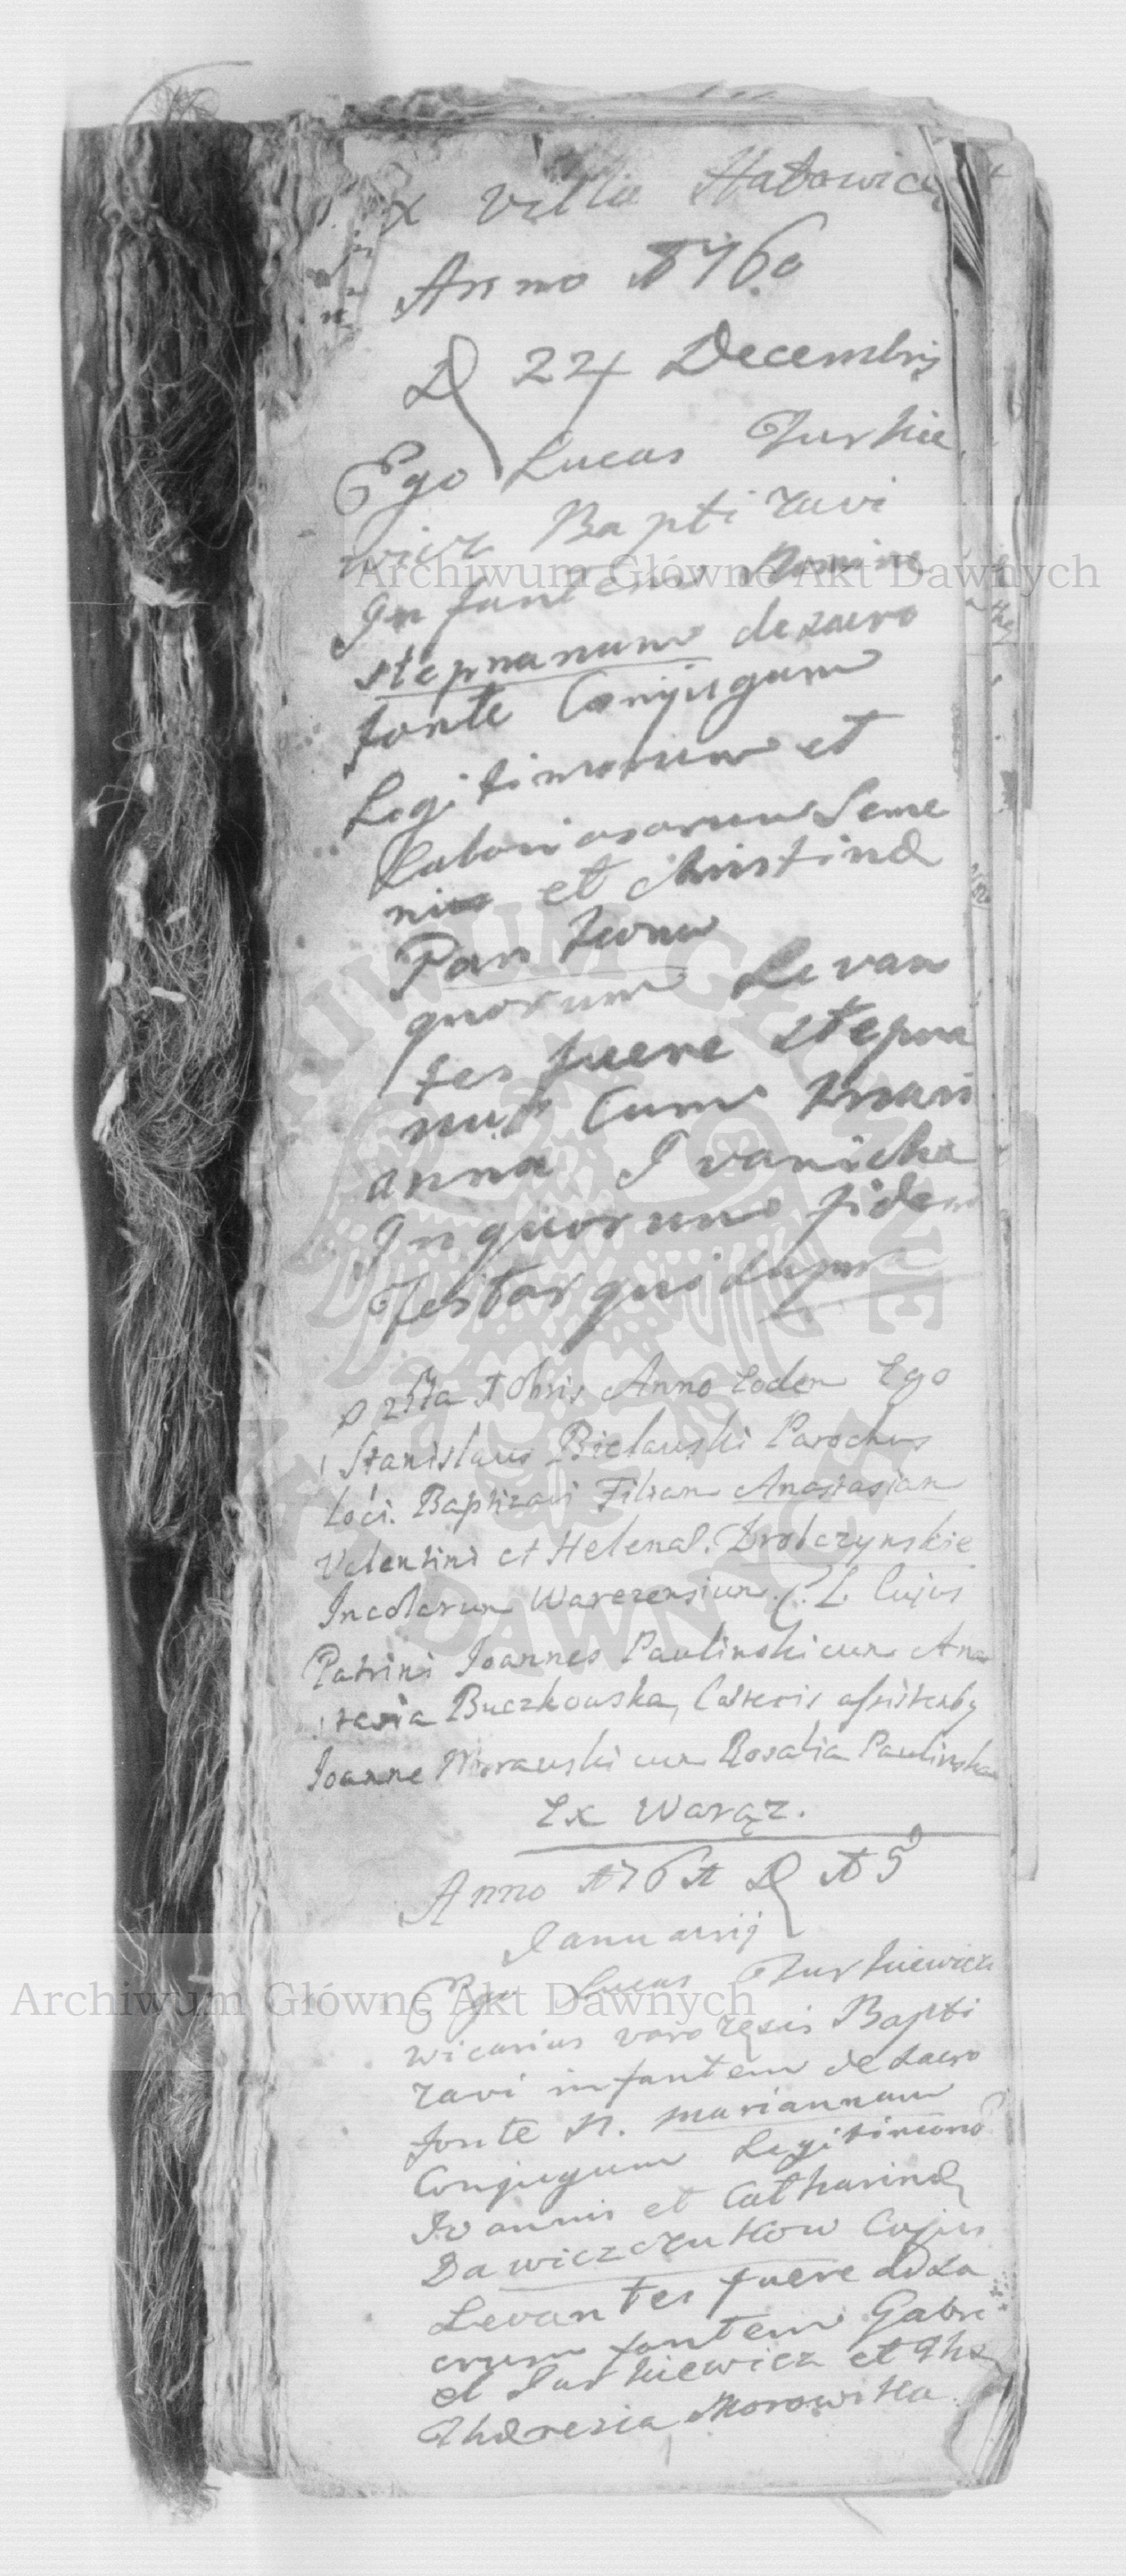 Ex Villa Hatowice
Anno 1760
D 24 Decembris
Ego Lucas Turkie
wicz Baptizavi
Infantem Nomine
stephanum de sacro
fonte Conjugum
Legitimorum et
Laboriosorum Seme
nis et Christinæ
quorum Levan
tes fuere Stepha
nus Cum Mari
anna Ivanicha
In quorum fidem
Testor qui supra
D 25ta Xbris Anno Eodem Ego
Stanislaus Bielawski Parochus
Loci. Baptizavi Filiam Anastasiam
Valentini et Helenæ. Drobczynskie
Incolarum Warezensium. C. L. Cujus
Patrini Joannes Paulinski cum Ana
stasia Buczkowska, Cæteris assistentibus
Joanne Morawski cum Rosalia Paulinska
Ex Warąz.
Anno 1761 D 15
Januarij
Ego Lucas Turkiewicz
Wicarius Bapti
zavi infantem de sacro
fonte N. Mariannam
Conjugum Legitimorum
Ioannis et Catharinæ
Dawiczczukow Cujus
Levantes fuere ad sa
crum fontem Gabri
el Turkiewicz et
Theresia Morowska.
Archiwum Główne Akt Dawnych
Archiwum Główne Akt Dawnych